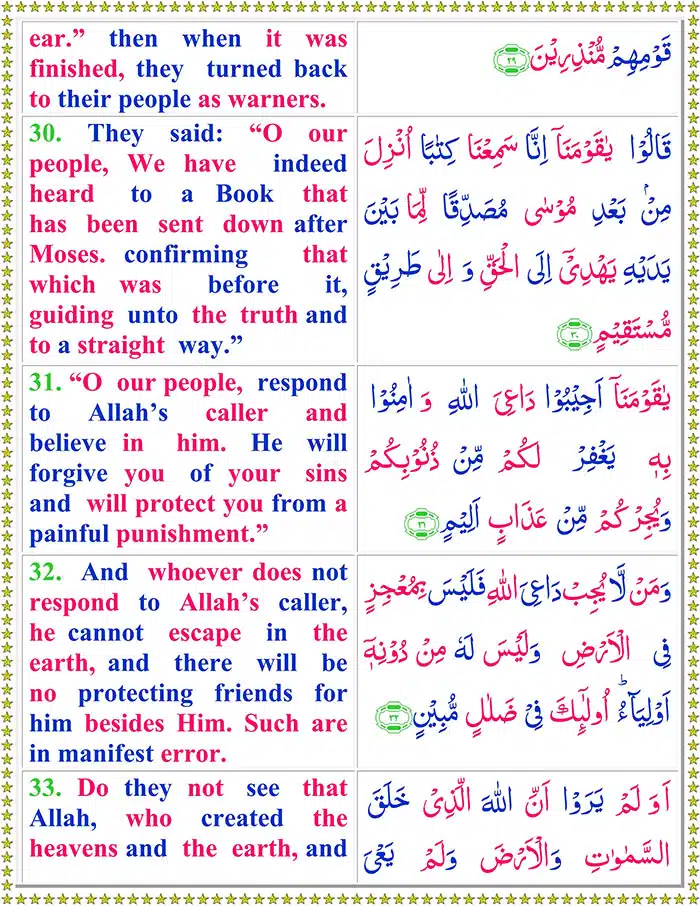 ear.” then when it was
finished, they turned back
to their people as warners.
قَوْمِهِمْ مُّنْذِرِيْنَ ۲۹
30. They said: “O our
people, We have indeed
heard to a Book that
has been sent down after
Moses. confirming that
which was before it,
guiding unto the truth and
to a straight way.”
قَالُوْا يٰقَوْمَنَاۤ اِنَّا سَمِعْنَا كِتٰبًا اُنْزِلَ
مِنْۢ بَعْدِ مُوْسٰى مُصَدِّقًا لِّمَا بَيْنَ
يَدَيْهِ يَهْدِيْۤ اِلَى الْحَقِّ وَ اِلٰى طَرِيْقٍ
مُّسْتَقِيْمٍ ۳۰
31. “O our people, respond
to Allah’s caller and
believe in him. He will
forgive you of your sins
and will protect you from a
painful punishment.”
يٰقَوْمَنَاۤ اَجِيْبُوْا دَاعِيَ اللّٰهِ وَ اٰمِنُوْا
بِهٖ يَغْفِرْ لَكُمْ مِّنْ ذُنُوْبِكُمْ
وَيُجِرْكُمْ مِّنْ عَذَابٍ اَلِيْمٍ ۳۱
32. And whoever does not
respond to Allah’s caller,
he cannot escape in the
earth, and there will be
no protecting friends for
him besides Him. Such are
in manifest error.
وَمَنْ لَّا يُجِبْ دَاعِيَ اللّٰهِ فَلَيْسَ بِمُعْجِزٍ
فِي الْاَرْضِ وَلَيْسَ لَهٗ مِنْ دُوْنِهٖۤ
اَوْلِيَآءُ ؕ اُولٰٓئِكَ فِيْ ضَلٰلٍ مُّبِيْنٍ ۳۲
33. Do they not see that
Allah, who created the
heavens and the earth, and
اَوَ لَمْ يَرَوْا اَنَّ اللّٰهَ الَّذِيْ خَلَقَ
السَّمٰوٰتِ وَالْاَرْضَ وَلَمْ يَعْيَ